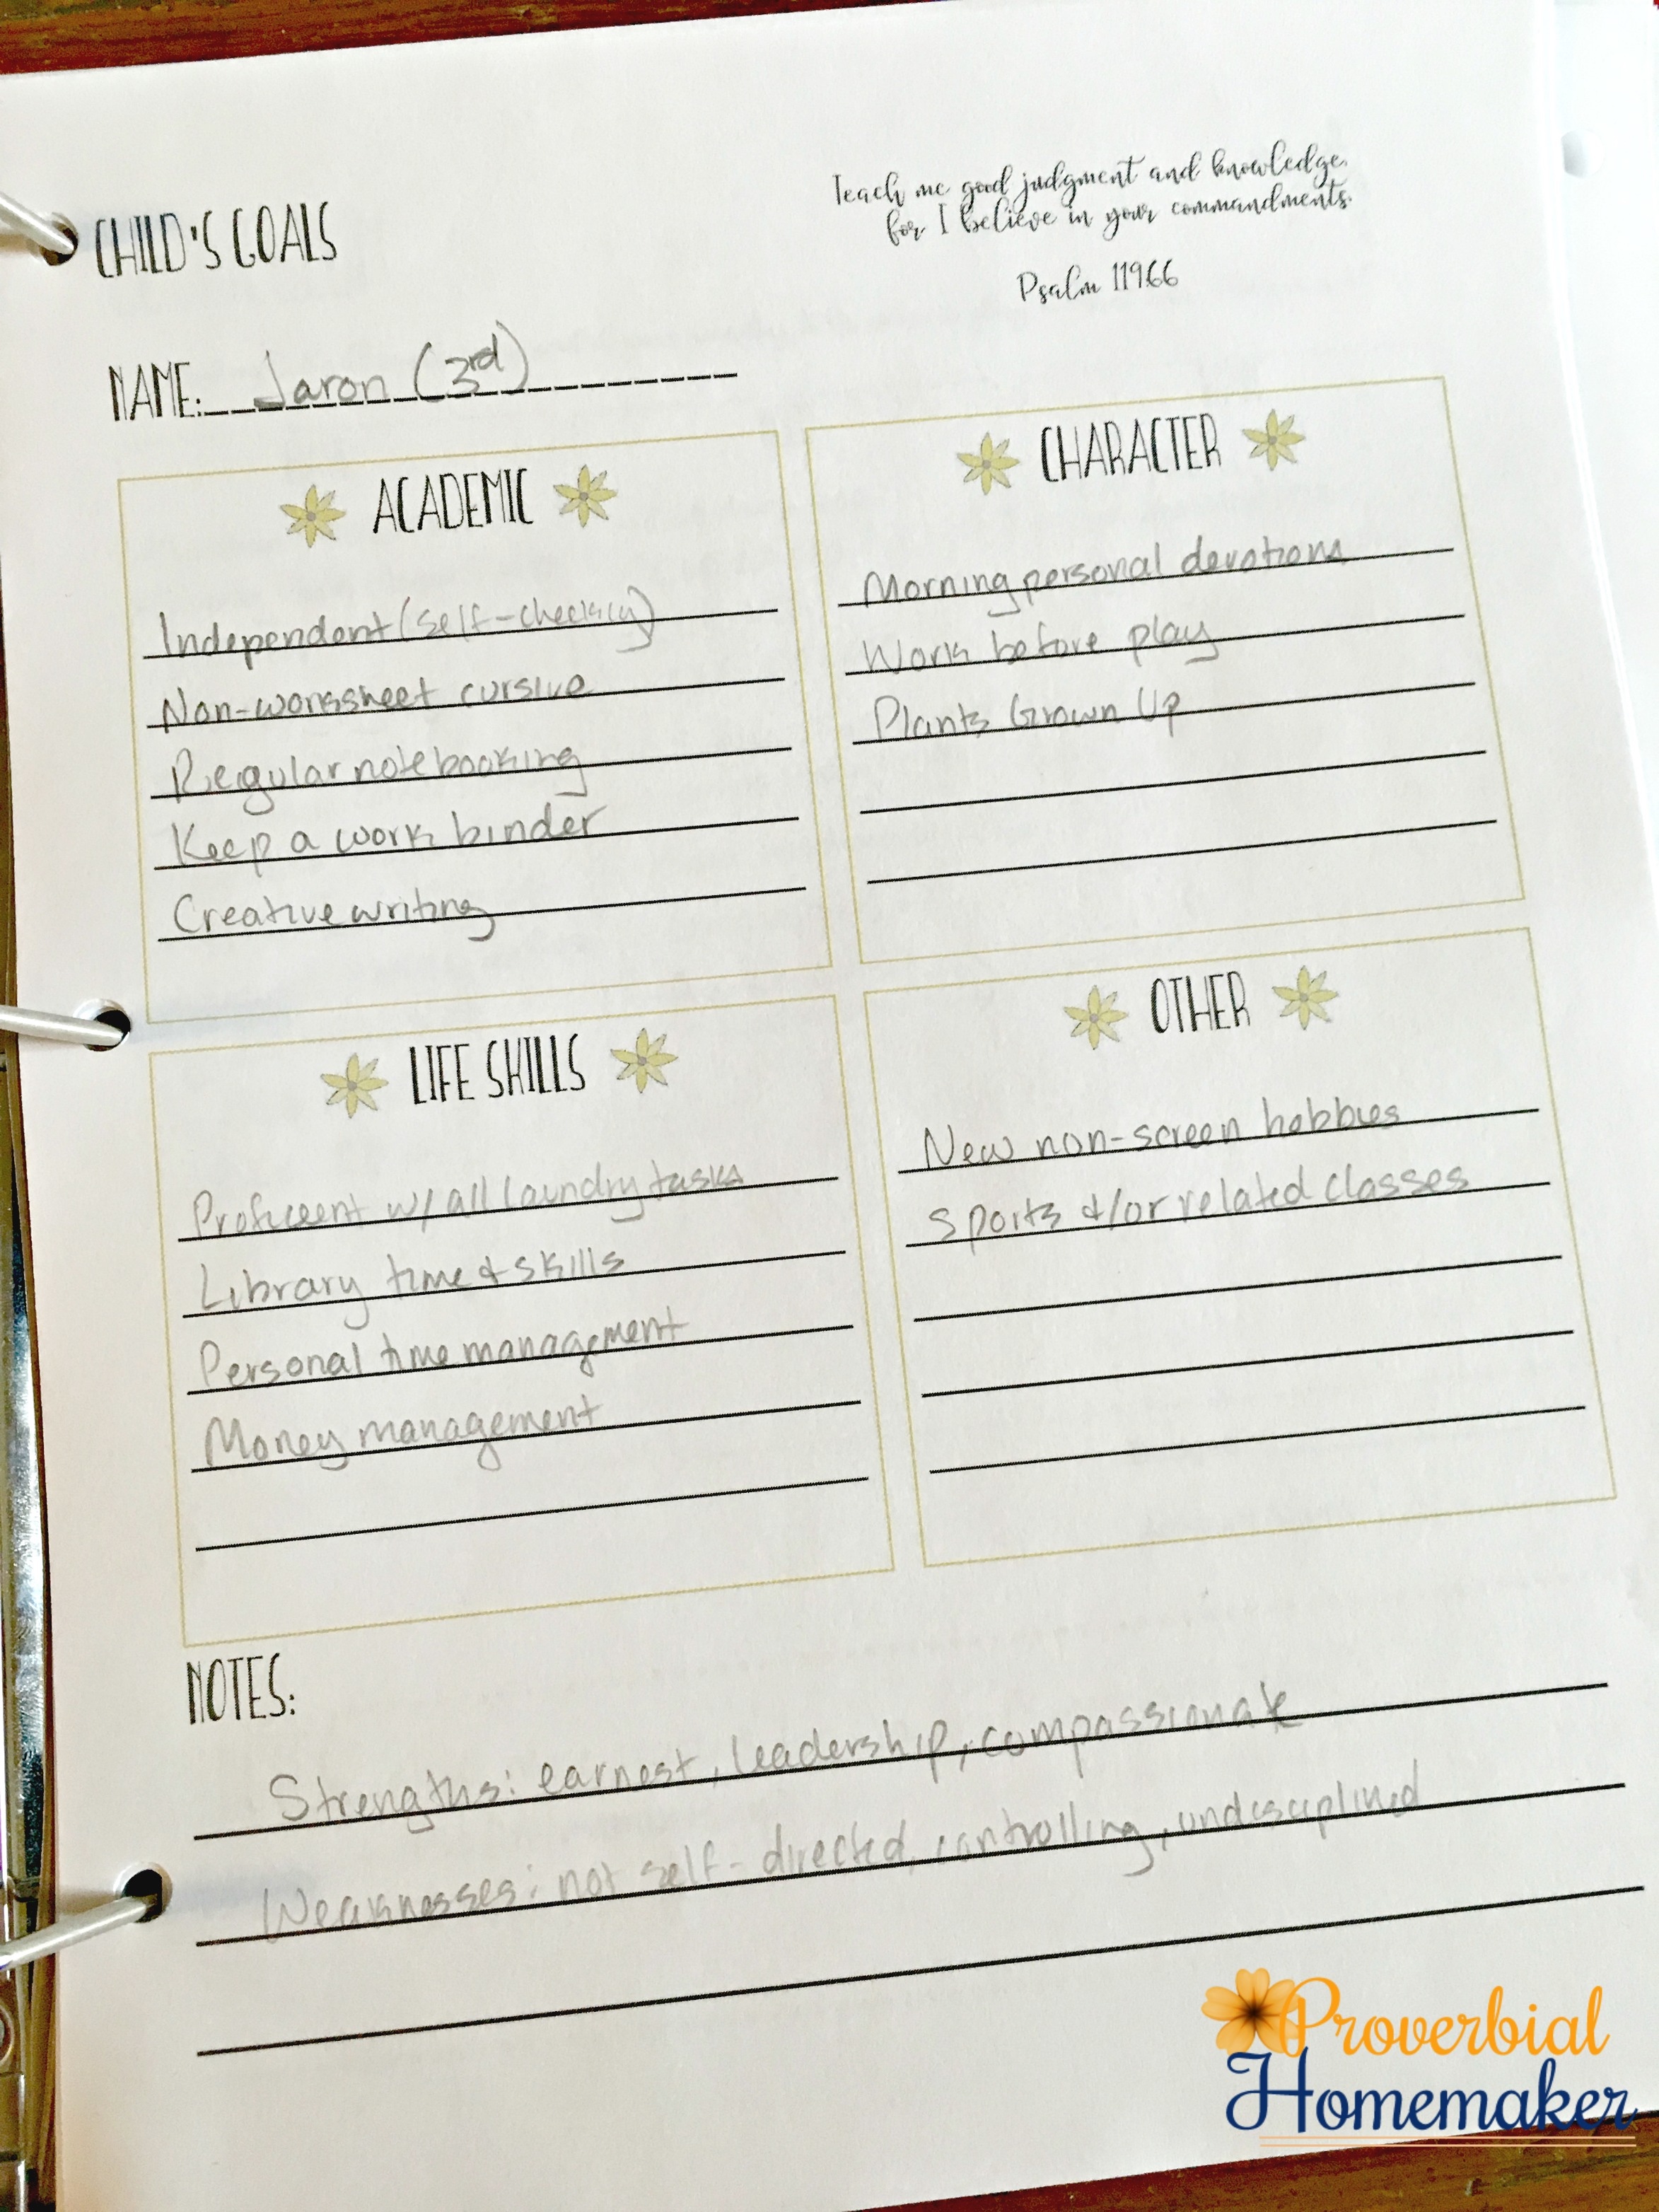 Teach me good judgment and knowledge,
for I believe in your commandments.
Psalm 119:66
CHILD'S GOALS
NAME: Jaron (3rd)
ACADEMIC
Independent (self-checking)
Non-worksheet cursive
Regular notebooking
Keep a work binder
Creative writing
CHARACTER
Morning personal devotions
Work before play
Plants Grown Up
LIFE SKILLS
Proficient w/ all laundry tasks
Library time & skills
Personal time management
Money management
OTHER
New non-screen hobbies
Sports &/or related classes
NOTES:
Strengths: earnest, leadership, compassionate
Weaknesses: not self-directed, controlling, undisciplined
Proverbial
Homemaker